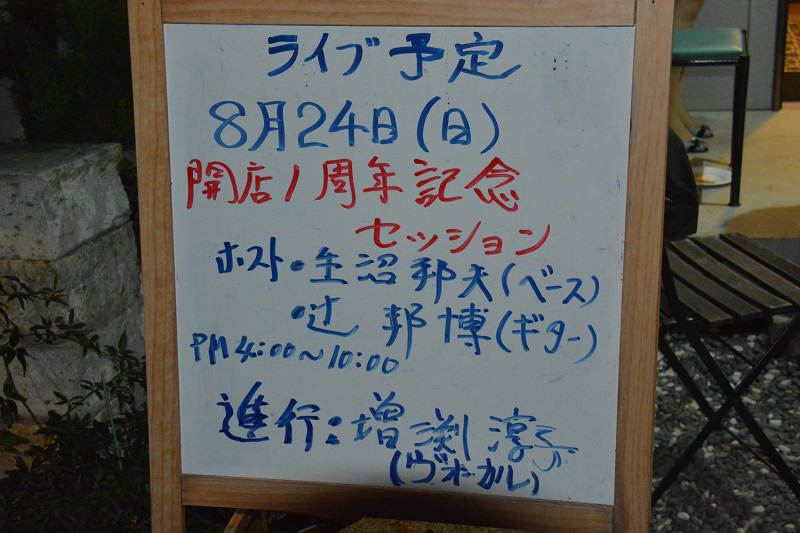 ライブ予定
8月24日(日)
開店1周年記念
セッション
ホスト・生沼邦夫(ベース)
・辻 邦博(ギター)
PM4:00~10:00
進行:増渕 淳子
(ヴォーカル)